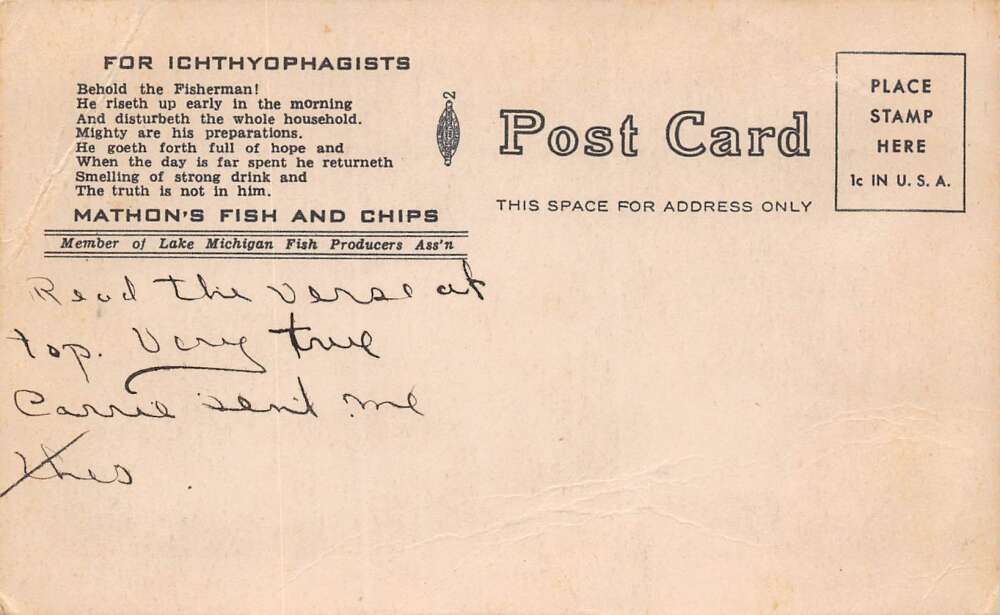 FOR ICHTHYOPHAGISTS
Behold the Fisherman!
He riseth up early in the morning
And disturbeth the whole household.
Mighty are his preparations.
He goeth forth full of hope and
When the day is far spent he returneth
Smelling of strong drink and
The truth is not in him.
MATHON'S FISH AND CHIPS
Member of Lake Michigan Fish Producers Ass'n
2
Post Card
THIS SPACE FOR ADDRESS ONLY
PLACE
STAMP
HERE
1c IN U. S. A.
Read the verse at
top. Very true
Carrie sent me
this